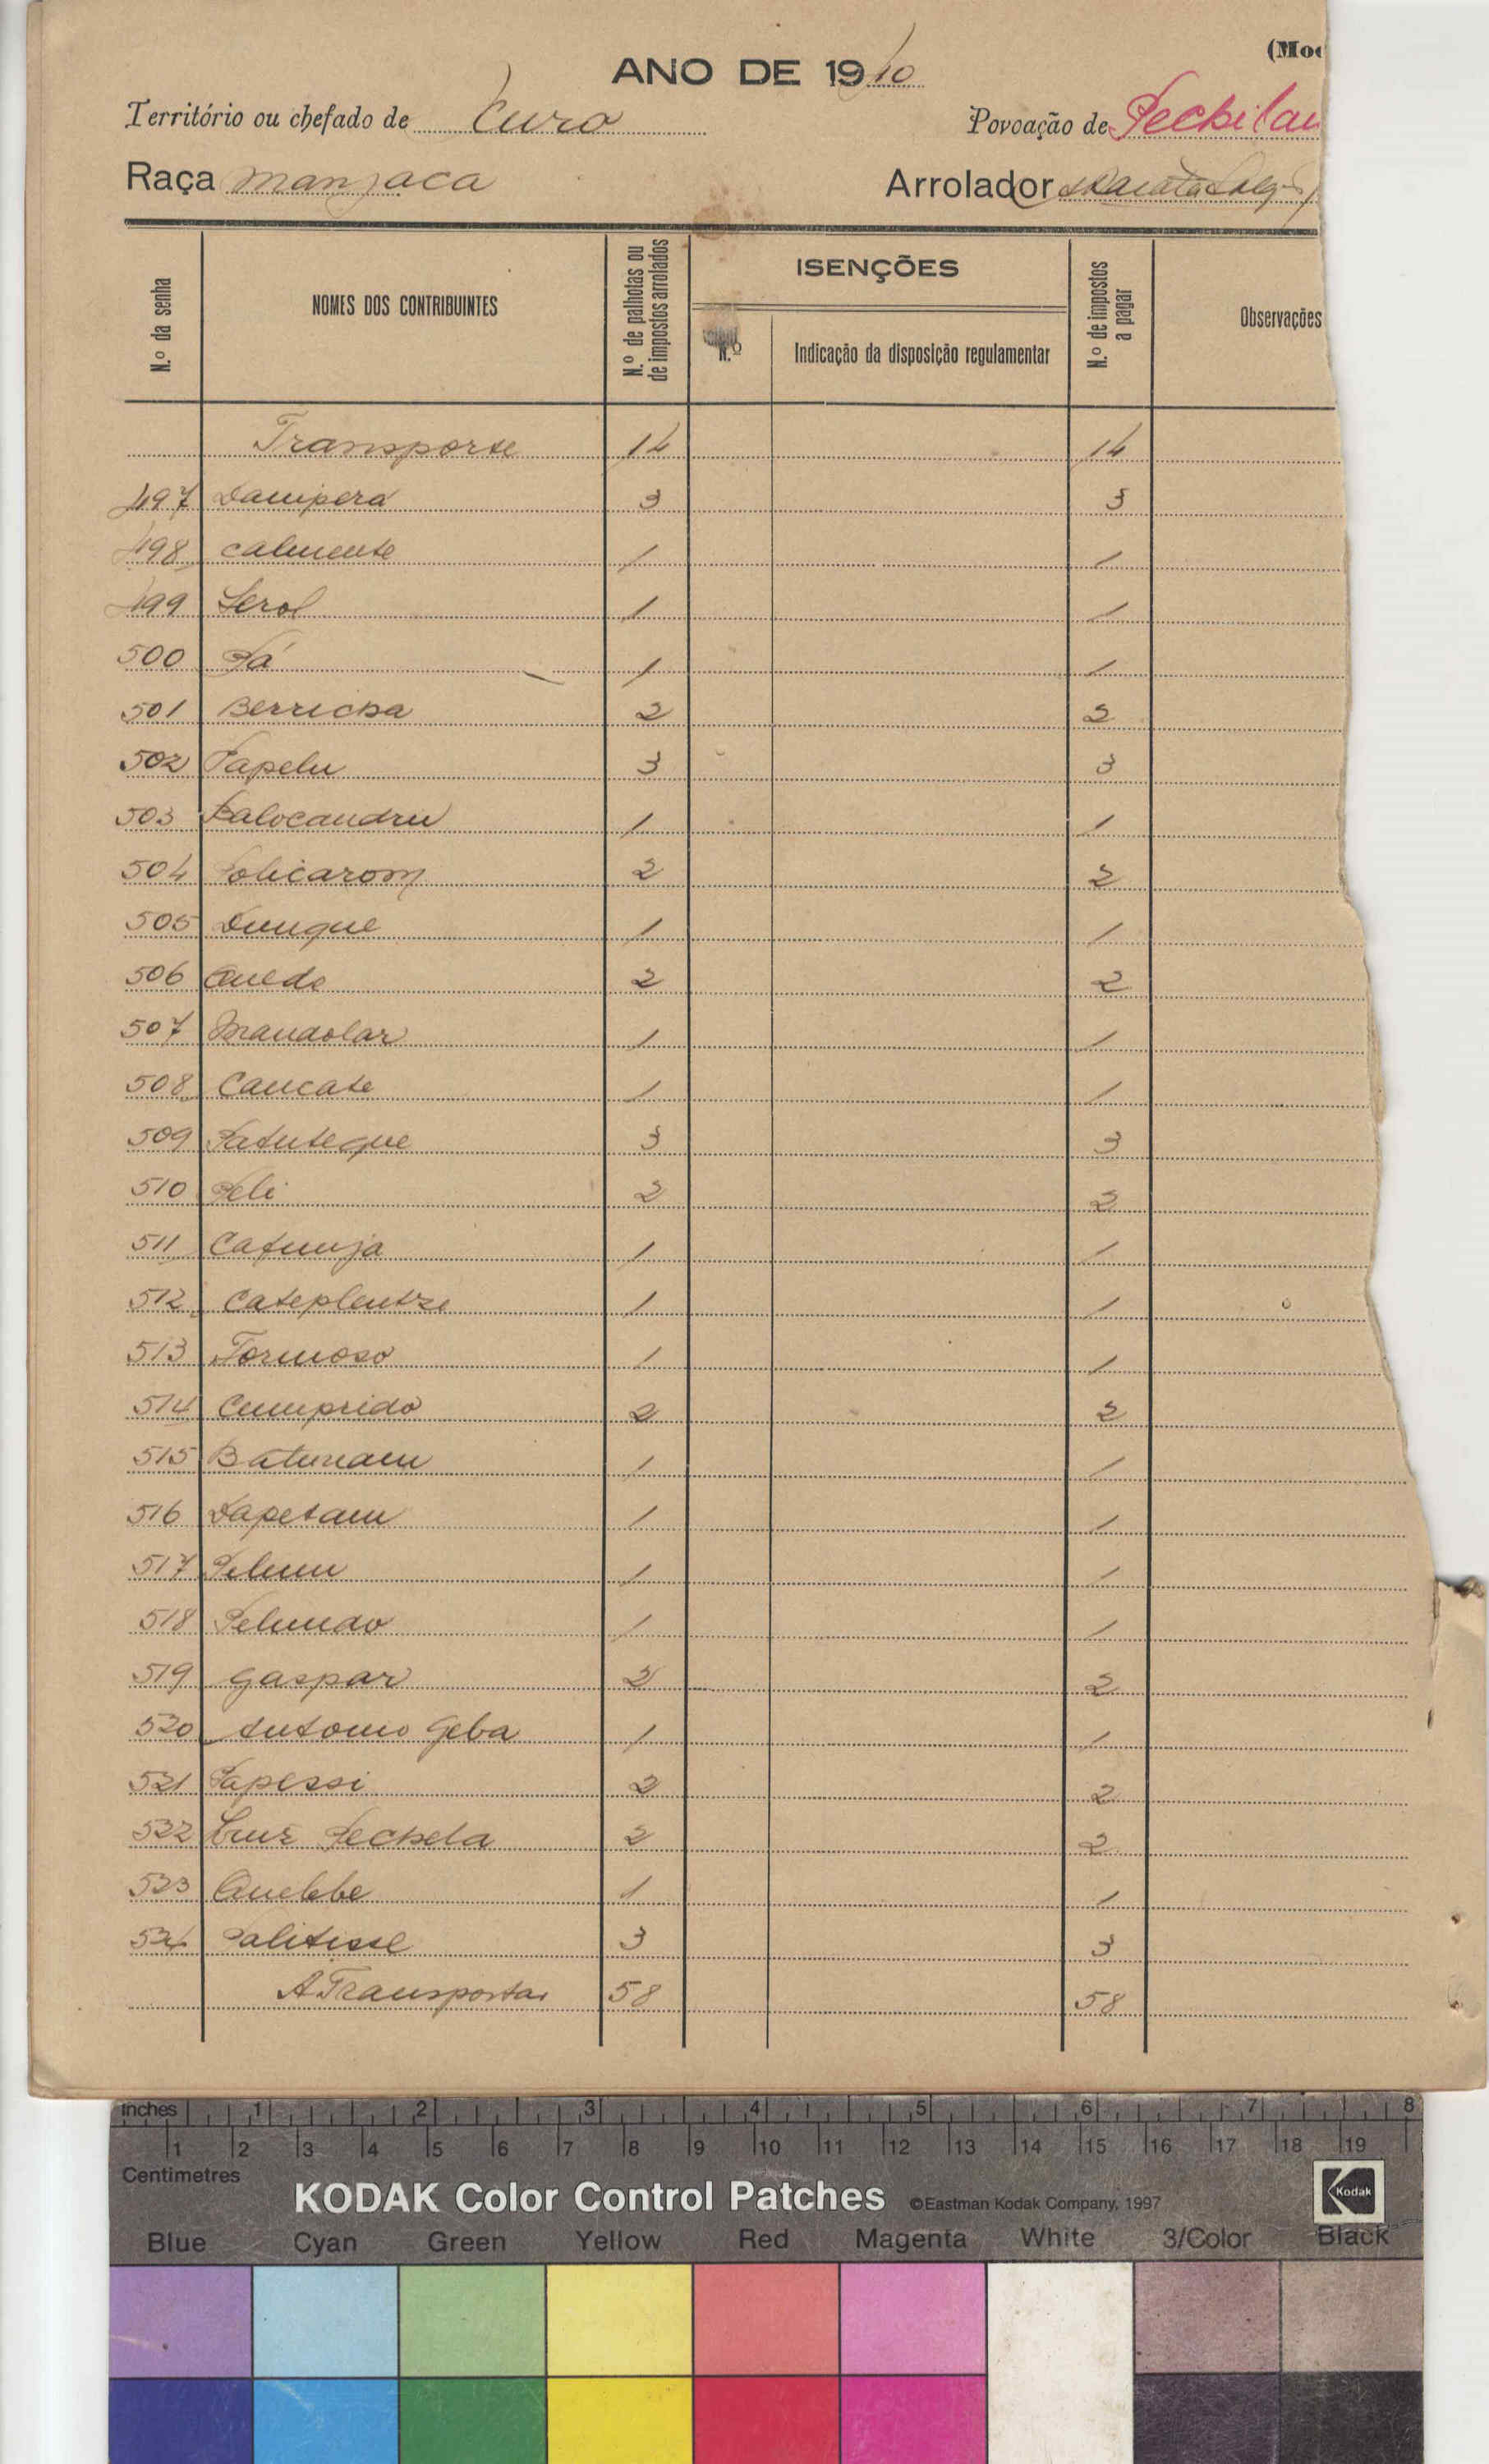 (Mod
ANO DE 1940
Território ou chefado de Curo
Povoação de Pechilau
Raça manjaca
Arrolador
N.º da senha
NOMES DOS CONTRIBUINTES
N.º de palhotas ou de impostos arrolados
ISENÇÕES
N.º
Indicação da disposição regulamentar
N.º de impostos a pagar
Observações
Transporte 14 14
497 Dampera 3 3
498 calmente 1 1
499 Serol 1 1
500 Pá 1 1
501 Berricha 2 2
502 Papelu 3 3
503 Balocandru 1 1
504 Policarom 2 2
505 Dunque 1 1
506 Quedo 2 2
507 Mandolar 1 1
508 Caucate 1 1
509 Patuteque 3 3
510 Peli 2 2
511 Catunja 1 1
512 Cateplentze 1 1
513 Formoso 1 1
514 Cumprido 2 2
515 Batunau 1 1
516 Dapetam 1 1
517 Pelum 1 1
518 Pelundo 1 1
519 Gaspar 2 2
520 Antonio Geba 1 1
521 Papessi 2 2
522 Cruz Pechela 2 2
523 Quebbe 1 1
524 Palitisse 3 3
A Transportar 58 58
inches 1 2 3 4 5 6 7 8
1 2 3 4 5 6 7 8 9 10 11 12 13 14 15 16 17 18 19
Centimetres
KODAK Color Control Patches ©Eastman Kodak Company, 1997 Kodak
Blue Cyan Green Yellow Red Magenta White 3/Color Black